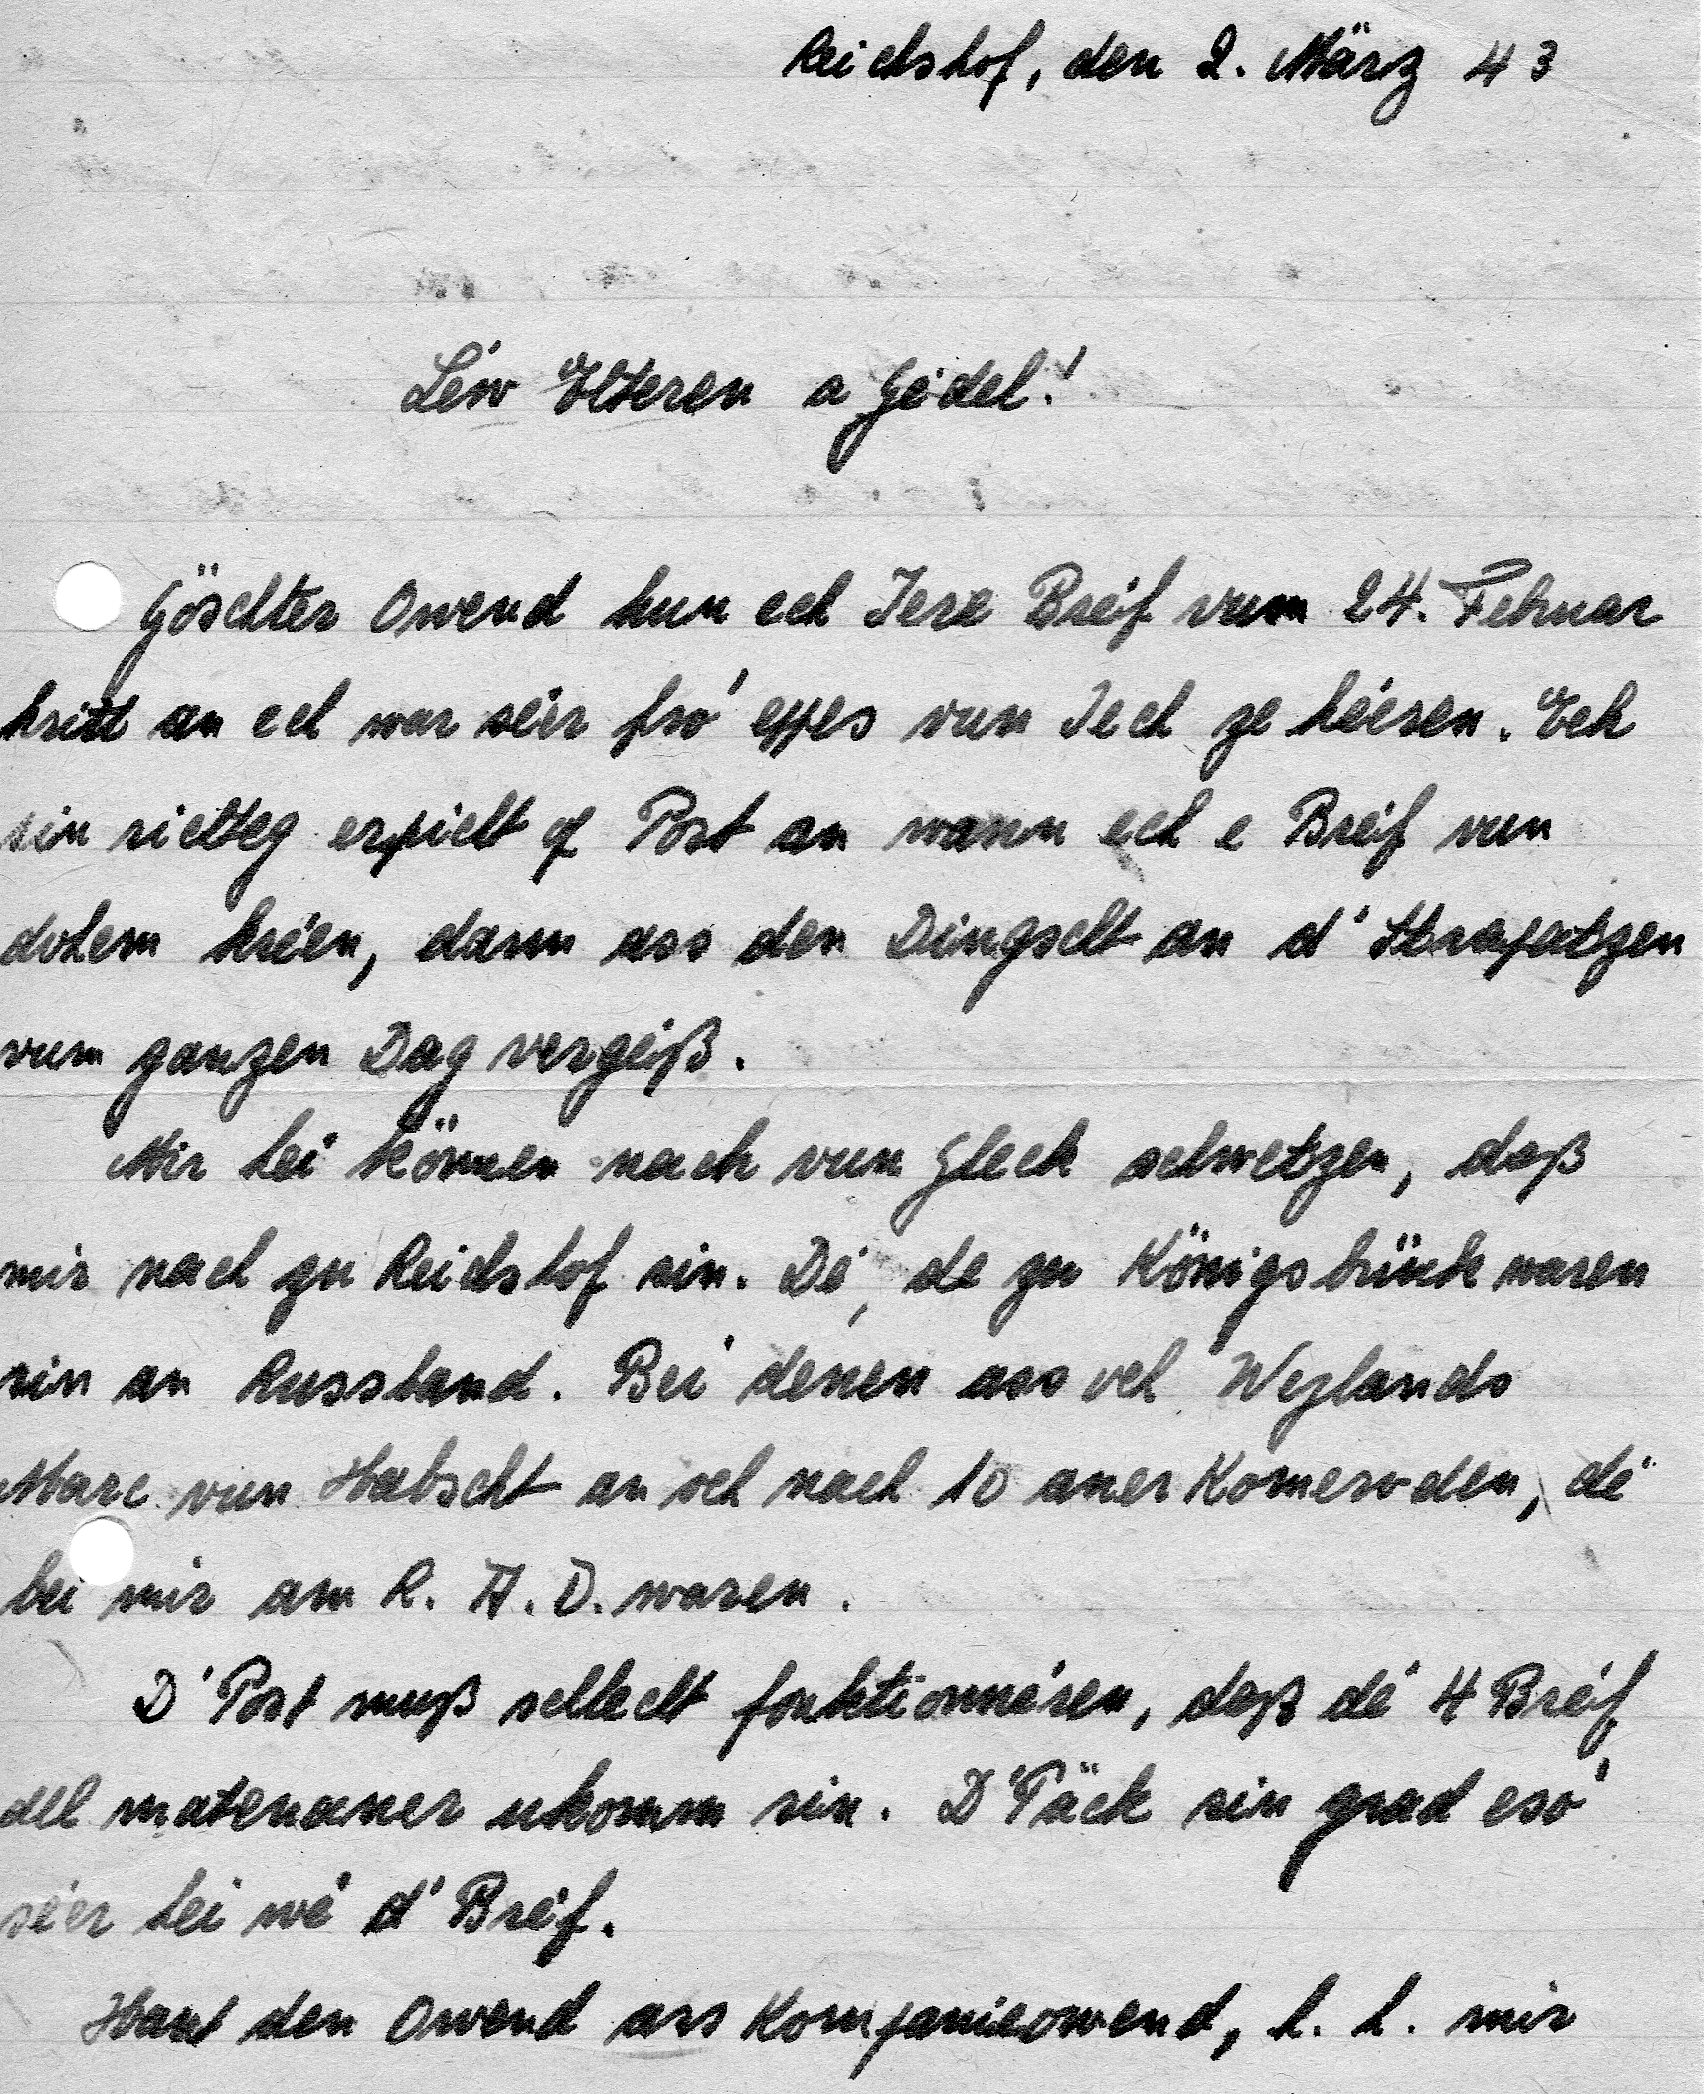 Reichshof, den 2. März 43
Léiw Elteren a Gédel!
Göschter Owend hun ech Iere Bréif vum 24. Februar
kritt an ech war séier fro' eppes vun Iech ze héieren. Ech
sin richteg erpicht op Post an wann ech e Bréif vun
dohem kréien, dann ass den Déngscht an d' Strapatzen
vum ganzen Dag vergéiß.
Mir hei können nach vun Gleck schwetzen, daß
mir nach zu Reichshof sin. Dé, de zu Königsbrück waren
sin an Russland. Bei denen ass och Weylands
Marc vun Habscht an och nach 10 aner Komeroden, dé
bei mir am R.A.D. waren.
D'Post muß schlecht fonktionnéren, daß dé 4 Bréif
all matenaner ukomm sin. D'Päck sin grad eso'
séier hei wé d' Bréif.
Haut den Owend ass Kompanieowend, h. h. mir